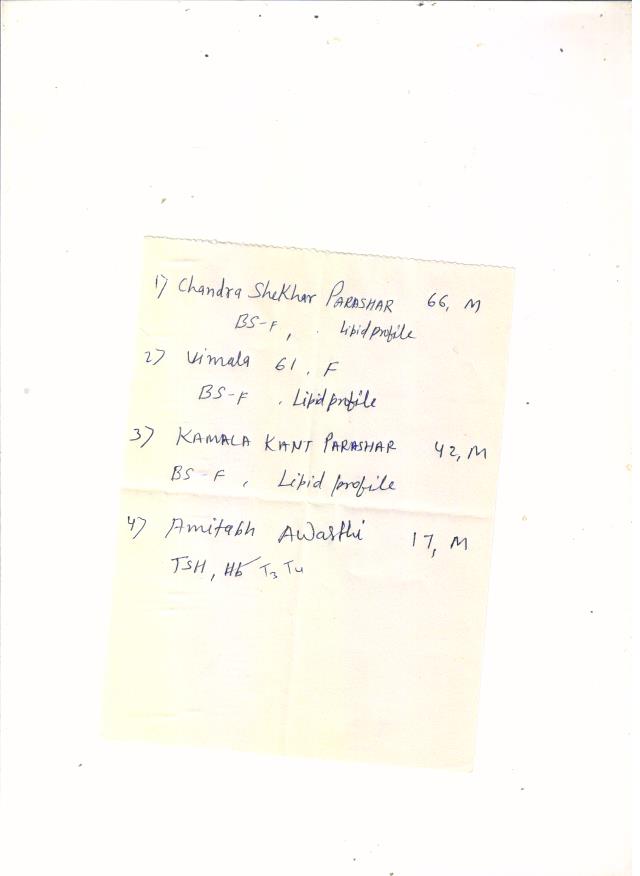 1) Chandra Shekhar PARASHAR 66, M
BS-F, . Lipid profile
2) Vimala 61, F
BS-F . Lipid profile
3) KAMALA KANT PARASHAR 42, M
BS-F, Lipid profile
4) Amitabh AWasthi 17, M
TSH, Hb T3 T4